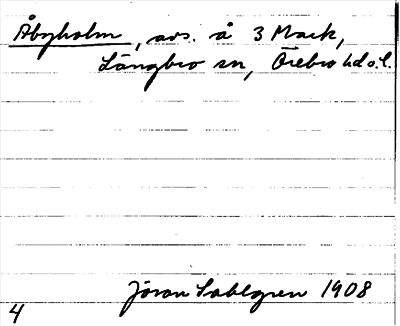 Åbyholm, avs. å 3 Mark,
Längbro sn, Örebro hd o. l.
Jöran Sahlgren 1908
4